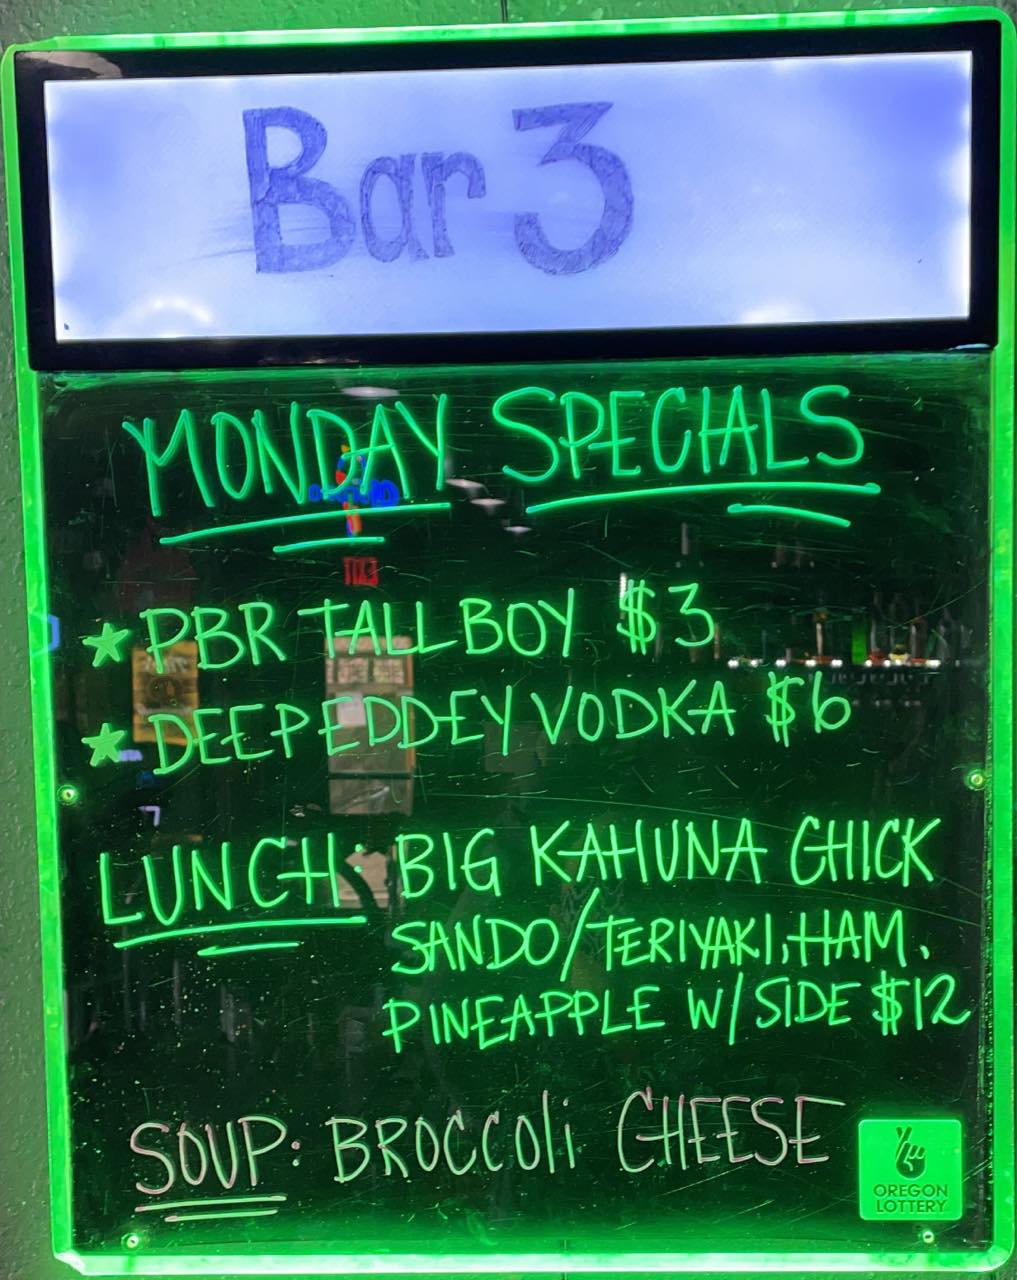 Bar 3
MONDAY SPECIALS
★ PBR TALLBOY $3
★ DEEP EDDEY VODKA $6
LUNCH: BIG KAHUNA CHICK
SANDO/TERIYAKI, HAM.
PINEAPPLE W/ SIDE $12
SOUP: BROCCOli CHEESE
OREGON
LOTTERY